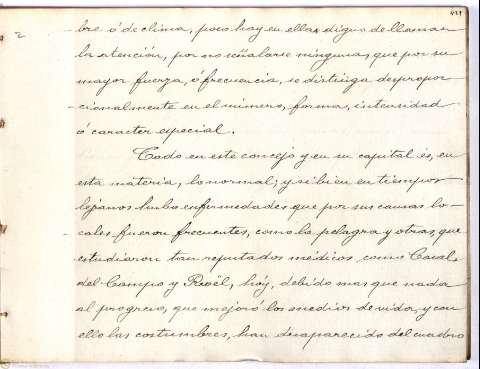 421
2
bre ó de clima, poco hay en ellas digno de llamar
la atención, por no señalarse ninguna, que por su
mayor fuerza, ó frecuencia, se distinga despropor-
-cionalmente en el número, forma, intensidad
ó caracter especial.
Todo en este concejo y en su capital es, en
esta materia, lo normal; y si bien en tiempos
lejanos hubo enfermedades que por sus causas lo-
cales fueron frecuentes, como la pelagra y otras, que
estudiaron tan reputados médicos como Casal,
del Campo y Roël, hoy, debido mas que nada
al progreso, que mejoró los medios de vida, y con
ello las costumbres, han desaparecido del cuadro